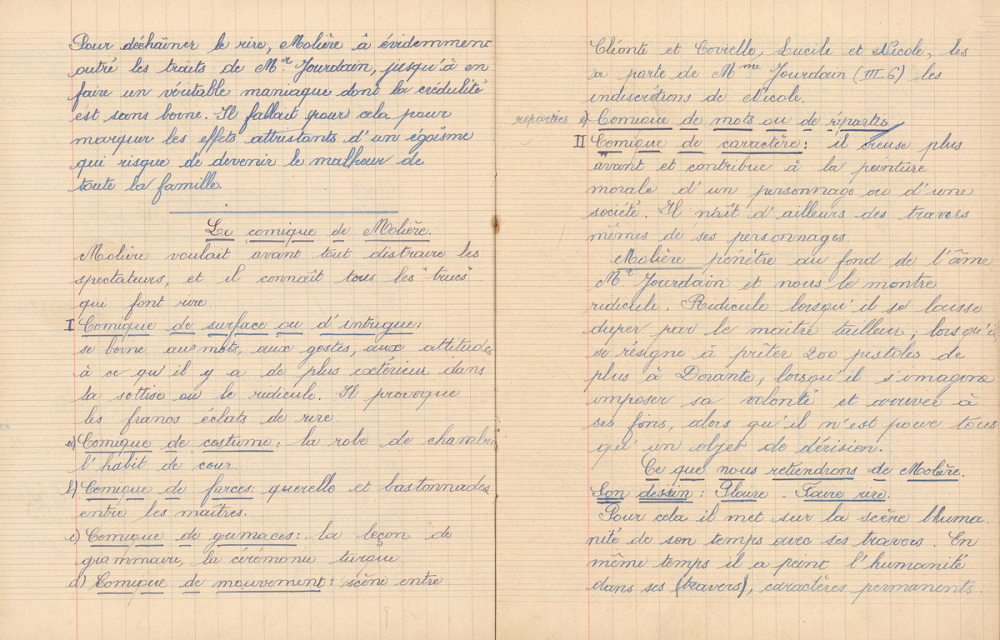 Pour déchaîner le rire, Molière a évidemment
outré les traits de Mr Jourdain, jusqu'à en
faire un véritable maniaque dont la crédulité
est sans borne. Il fallait pour cela pour
marquer les effets attristants d'un égoïsme
qui risque de devenir le malheur de
toute la famille.
Le comique de Molière.
Molière voulait avant tout distraire les
spectateurs, et il connaît tous les "trucs"
qui font rire
I Comique de surface ou d'intrigue:
se borne aux mots, aux gestes, aux attitudes
à ce qu'il y a de plus extérieur dans
la sottise ou le ridicule. Il provoque
les francs éclats de rire
a) Comique de costume: la robe de chambre
l'habit de cour.
b) Comique de farces: querelle et bastonnades
entre les maîtres.
c) Comique de grimaces: la leçon de
grammaire, la cérémonie turque
d) Comique de mouvement: scène entre
Cléonte et Covielle, Lucile et Nicole, les
a parte de Mme Jourdain (III-6) les
indiscrétions de Nicole.
reparties e) Comique de mots ou de réparties
II Comique de caractère: il creuse plus
avant et contribue à la peinture
morale d'un personnage ou d'une
société. Il naît d'ailleurs des travers
mêmes de ses personnages.
Molière pénètre au fond de l'âme
Mr Jourdain et nous le montre
ridicule. Ridicule lorsqu'il se laisse
duper par le maître tailleur; lorsqu'il
se résigne à prêter 200 pistoles de
plus à Dorante, lorsqu'il s'imagine
imposer sa volonté et arriver à
ses fins, alors qu'il n'est pour tous
qu'un objet de dérision.
Ce que nous retiendrons de Molière.
Son dessin: Plaire - Faire rire.
Pour cela il met sur la scène l'huma
nité de son temps avec ses travers. En
même temps il a peint l'humanité
dans ses (travers), caractères permanents.